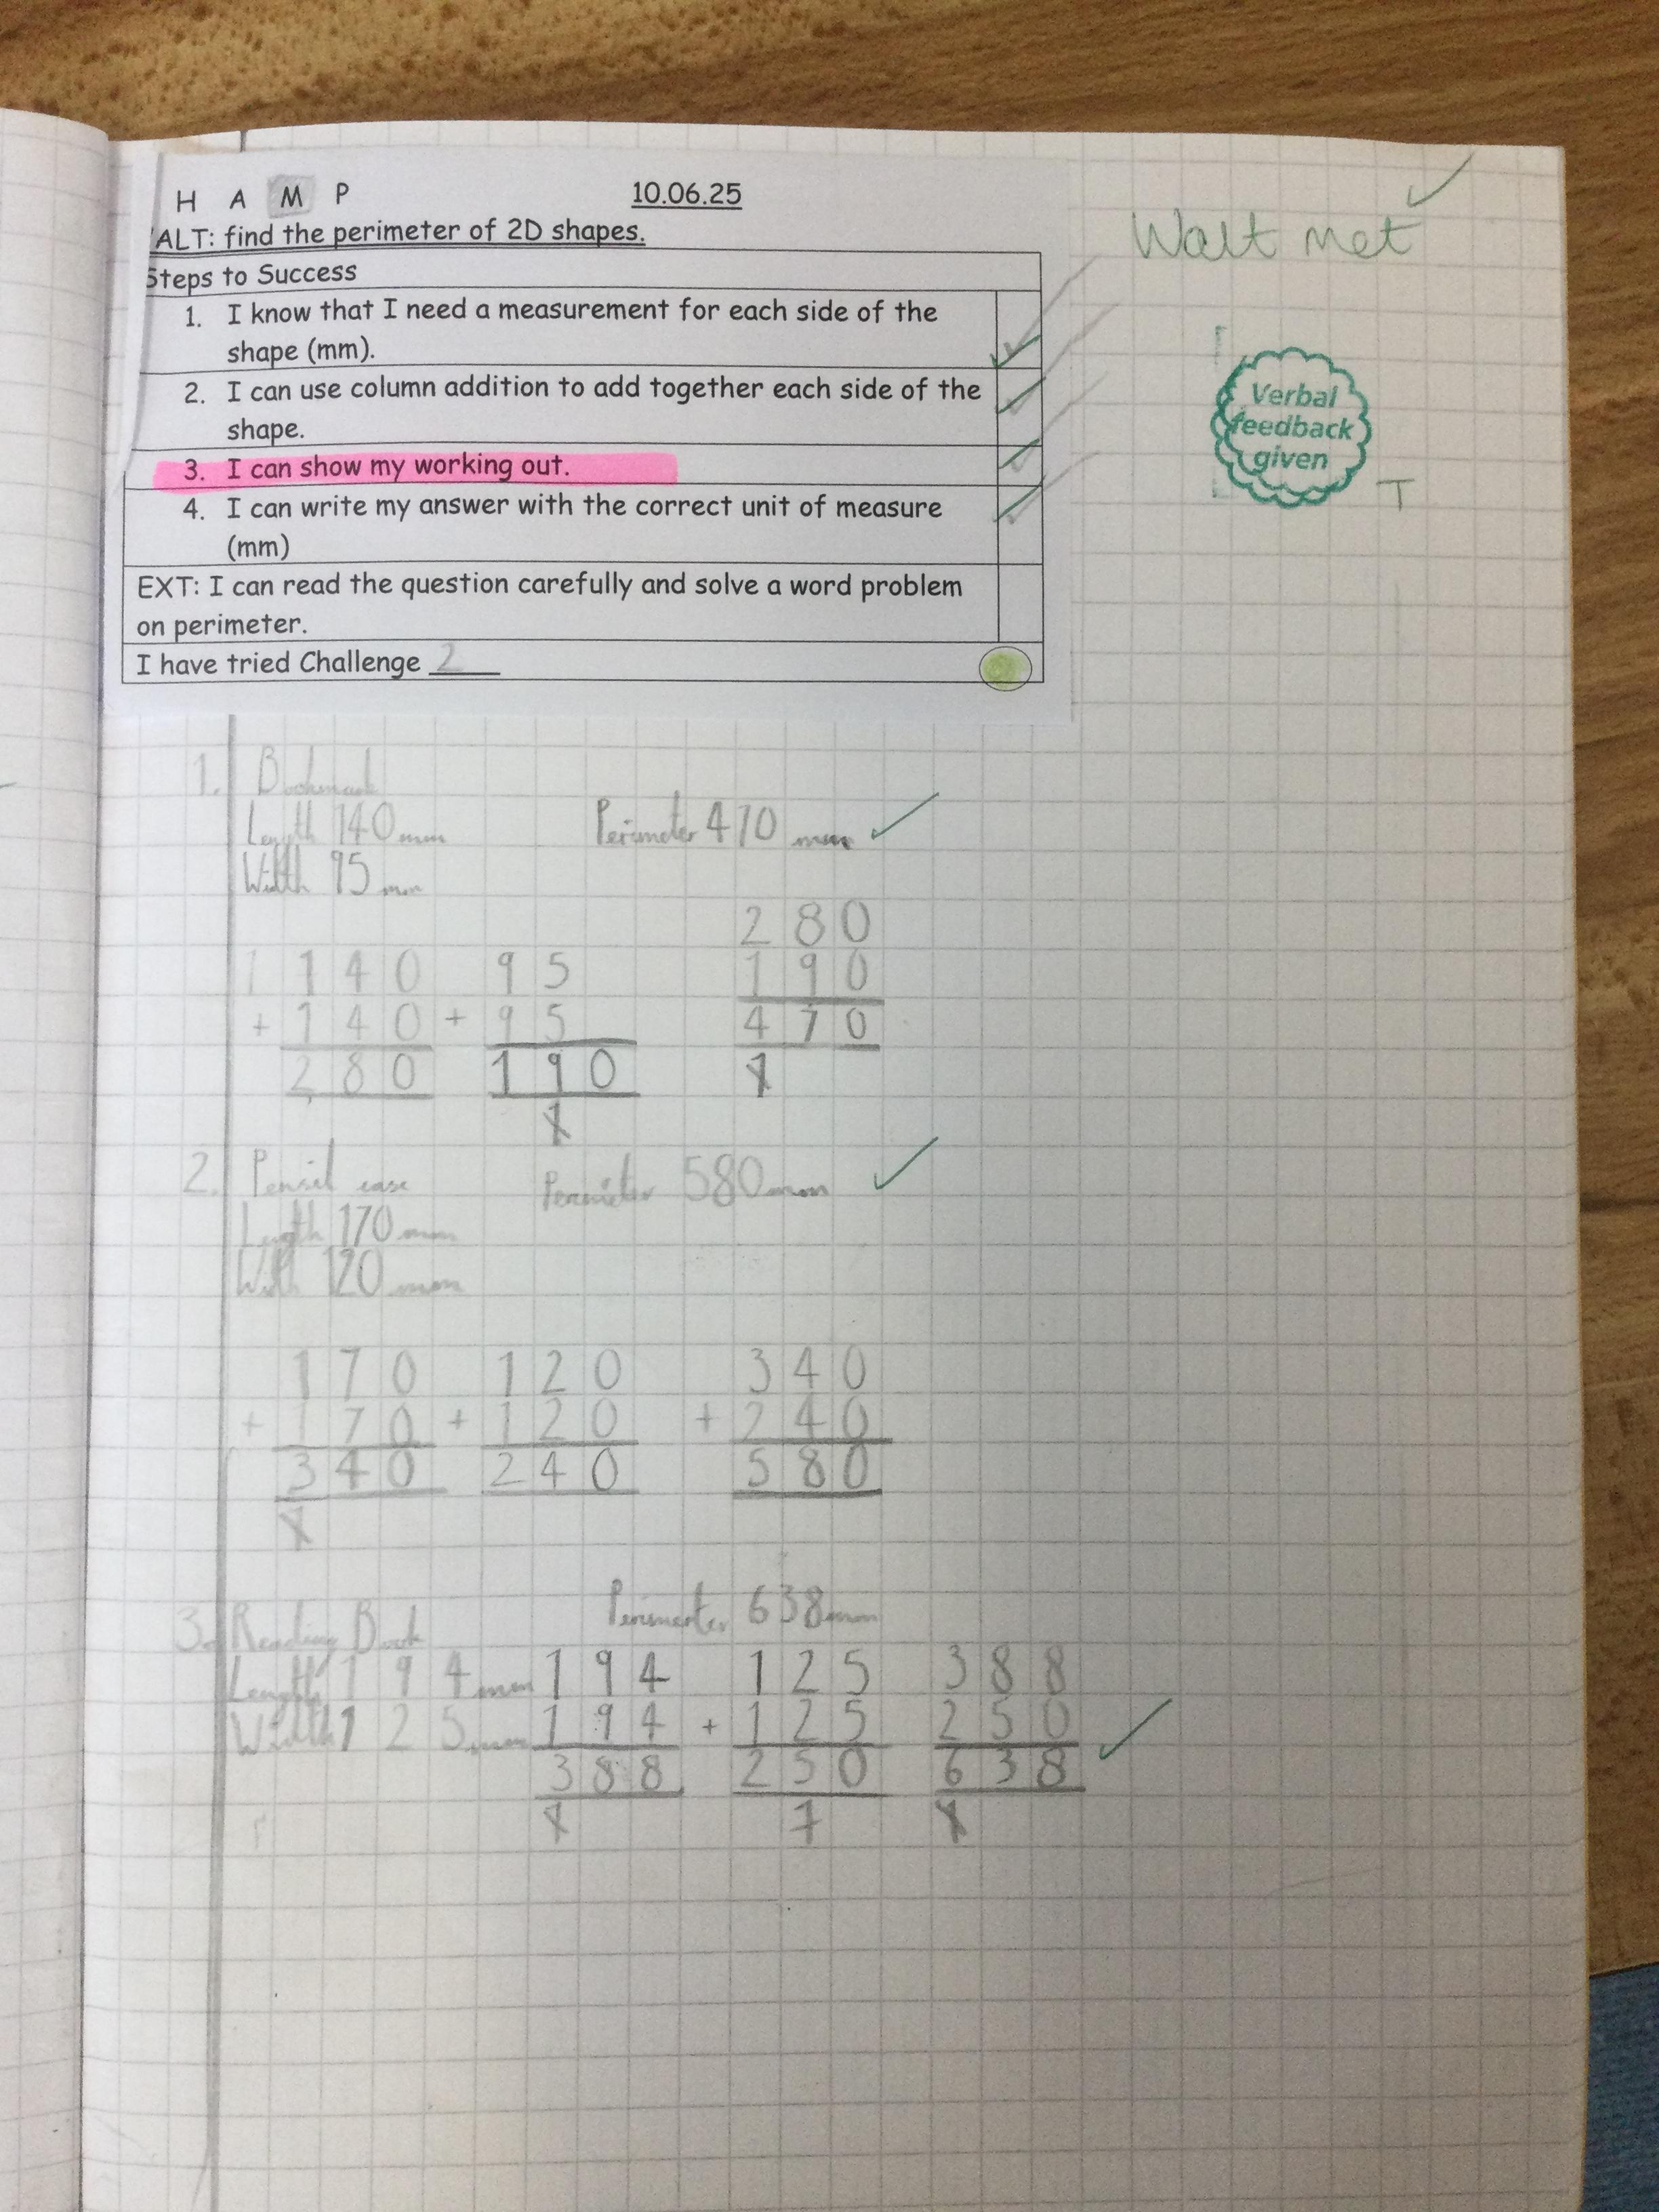 H A M P 10.06.25
ALT: find the perimeter of 2D shapes.
Steps to Success
1. I know that I need a measurement for each side of the
shape (mm).
2. I can use column addition to add together each side of the
shape.
3. I can show my working out.
4. I can write my answer with the correct unit of measure
(mm)
EXT: I can read the question carefully and solve a word problem
on perimeter.
I have tried Challenge 2
Walt met
Verbal
feedback
given
T
1. Bookmark
Length 140 mm Perimeter 470 mm
Width 95 mm
280
140 95 190
+ 140 + 95 470
280 190 1
1
2. Pensil case Perimeter 580 mm
Length 170 mm
With 120 mm
170 120 340
+ 170 + 120 + 240
340 240 580
1
3. Reading Book Perimerter 638mm
Length 194 mm 194 125 388
Width 125 mm 194 + 125 250
388 250 638
1 1 1